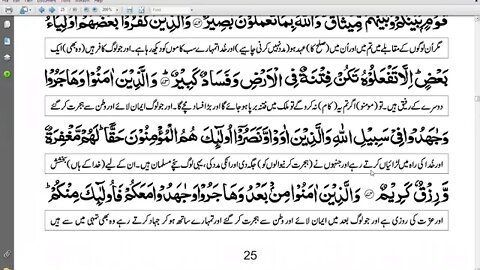 قَوْمٍ بَيْنَكُمْ وَبَيْنَهُمْ مِّيثَاقٌ وَاللَّهُ بِمَا تَعْمَلُونَ بَصِيرٌ وَالَّذِينَ كَفَرُوا بَعْضُهُمْ أَوْلِيَاءُ
مگر اُن لوگوں کے مقابلے میں تم میں اور اُن میں (صلح کا) عہد ہو (مدد نہیں کرنی چاہیے) اور خدا تمہارے سب کاموں کو دیکھ رہا ہے۔ اور جو لوگ کافر ہیں (وہ بھی) ایک
بَعْضٍ إِلَّا تَفْعَلُوهُ تَكُن فِتْنَةٌ فِي الْأَرْضِ وَفَسَادٌ كَبِيرٌ وَالَّذِينَ آمَنُوا وَهَاجَرُوا
دوسرے کے رفیق ہیں۔ تو (مومنو) اگر تم یہ (کام) نہ کرو گے تو ملک میں فتنہ برپا ہو جائے گا اور بڑا فساد مچے گا۔ اور جو لوگ ایمان لائے اور وطن سے ہجرت کر گئے
وَجَاهَدُوا فِي سَبِيلِ اللَّهِ وَالَّذِينَ آوَوا وَّنَصَرُوا أُولَٰئِكَ هُمُ الْمُؤْمِنُونَ حَقًّا لَّهُم مَّغْفِرَةٌ
اور خدا کی راہ میں لڑائیاں کرتے رہے اور جنہوں نے (ہجرت کرنیوالوں کو) جگہ دی اور انکی مدد کی، یہی لوگ سچے مسلمان ہیں۔ ان کے لیے (خدا کے ہاں) بخشش
وَرِزْقٌ كَرِيمٌ وَالَّذِينَ آمَنُوا مِن بَعْدُ وَهَاجَرُوا وَجَاهَدُوا مَعَكُمْ فَأُولَٰئِكَ مِنكُمْ
اور عزت کی روزی ہے اور جو لوگ بعد میں ایمان لائے اور وطن سے ہجرت کر گئے اور تمہارے ساتھ ہو کر جہاد کرتے رہے وہ بھی تمہی میں سے ہیں
25